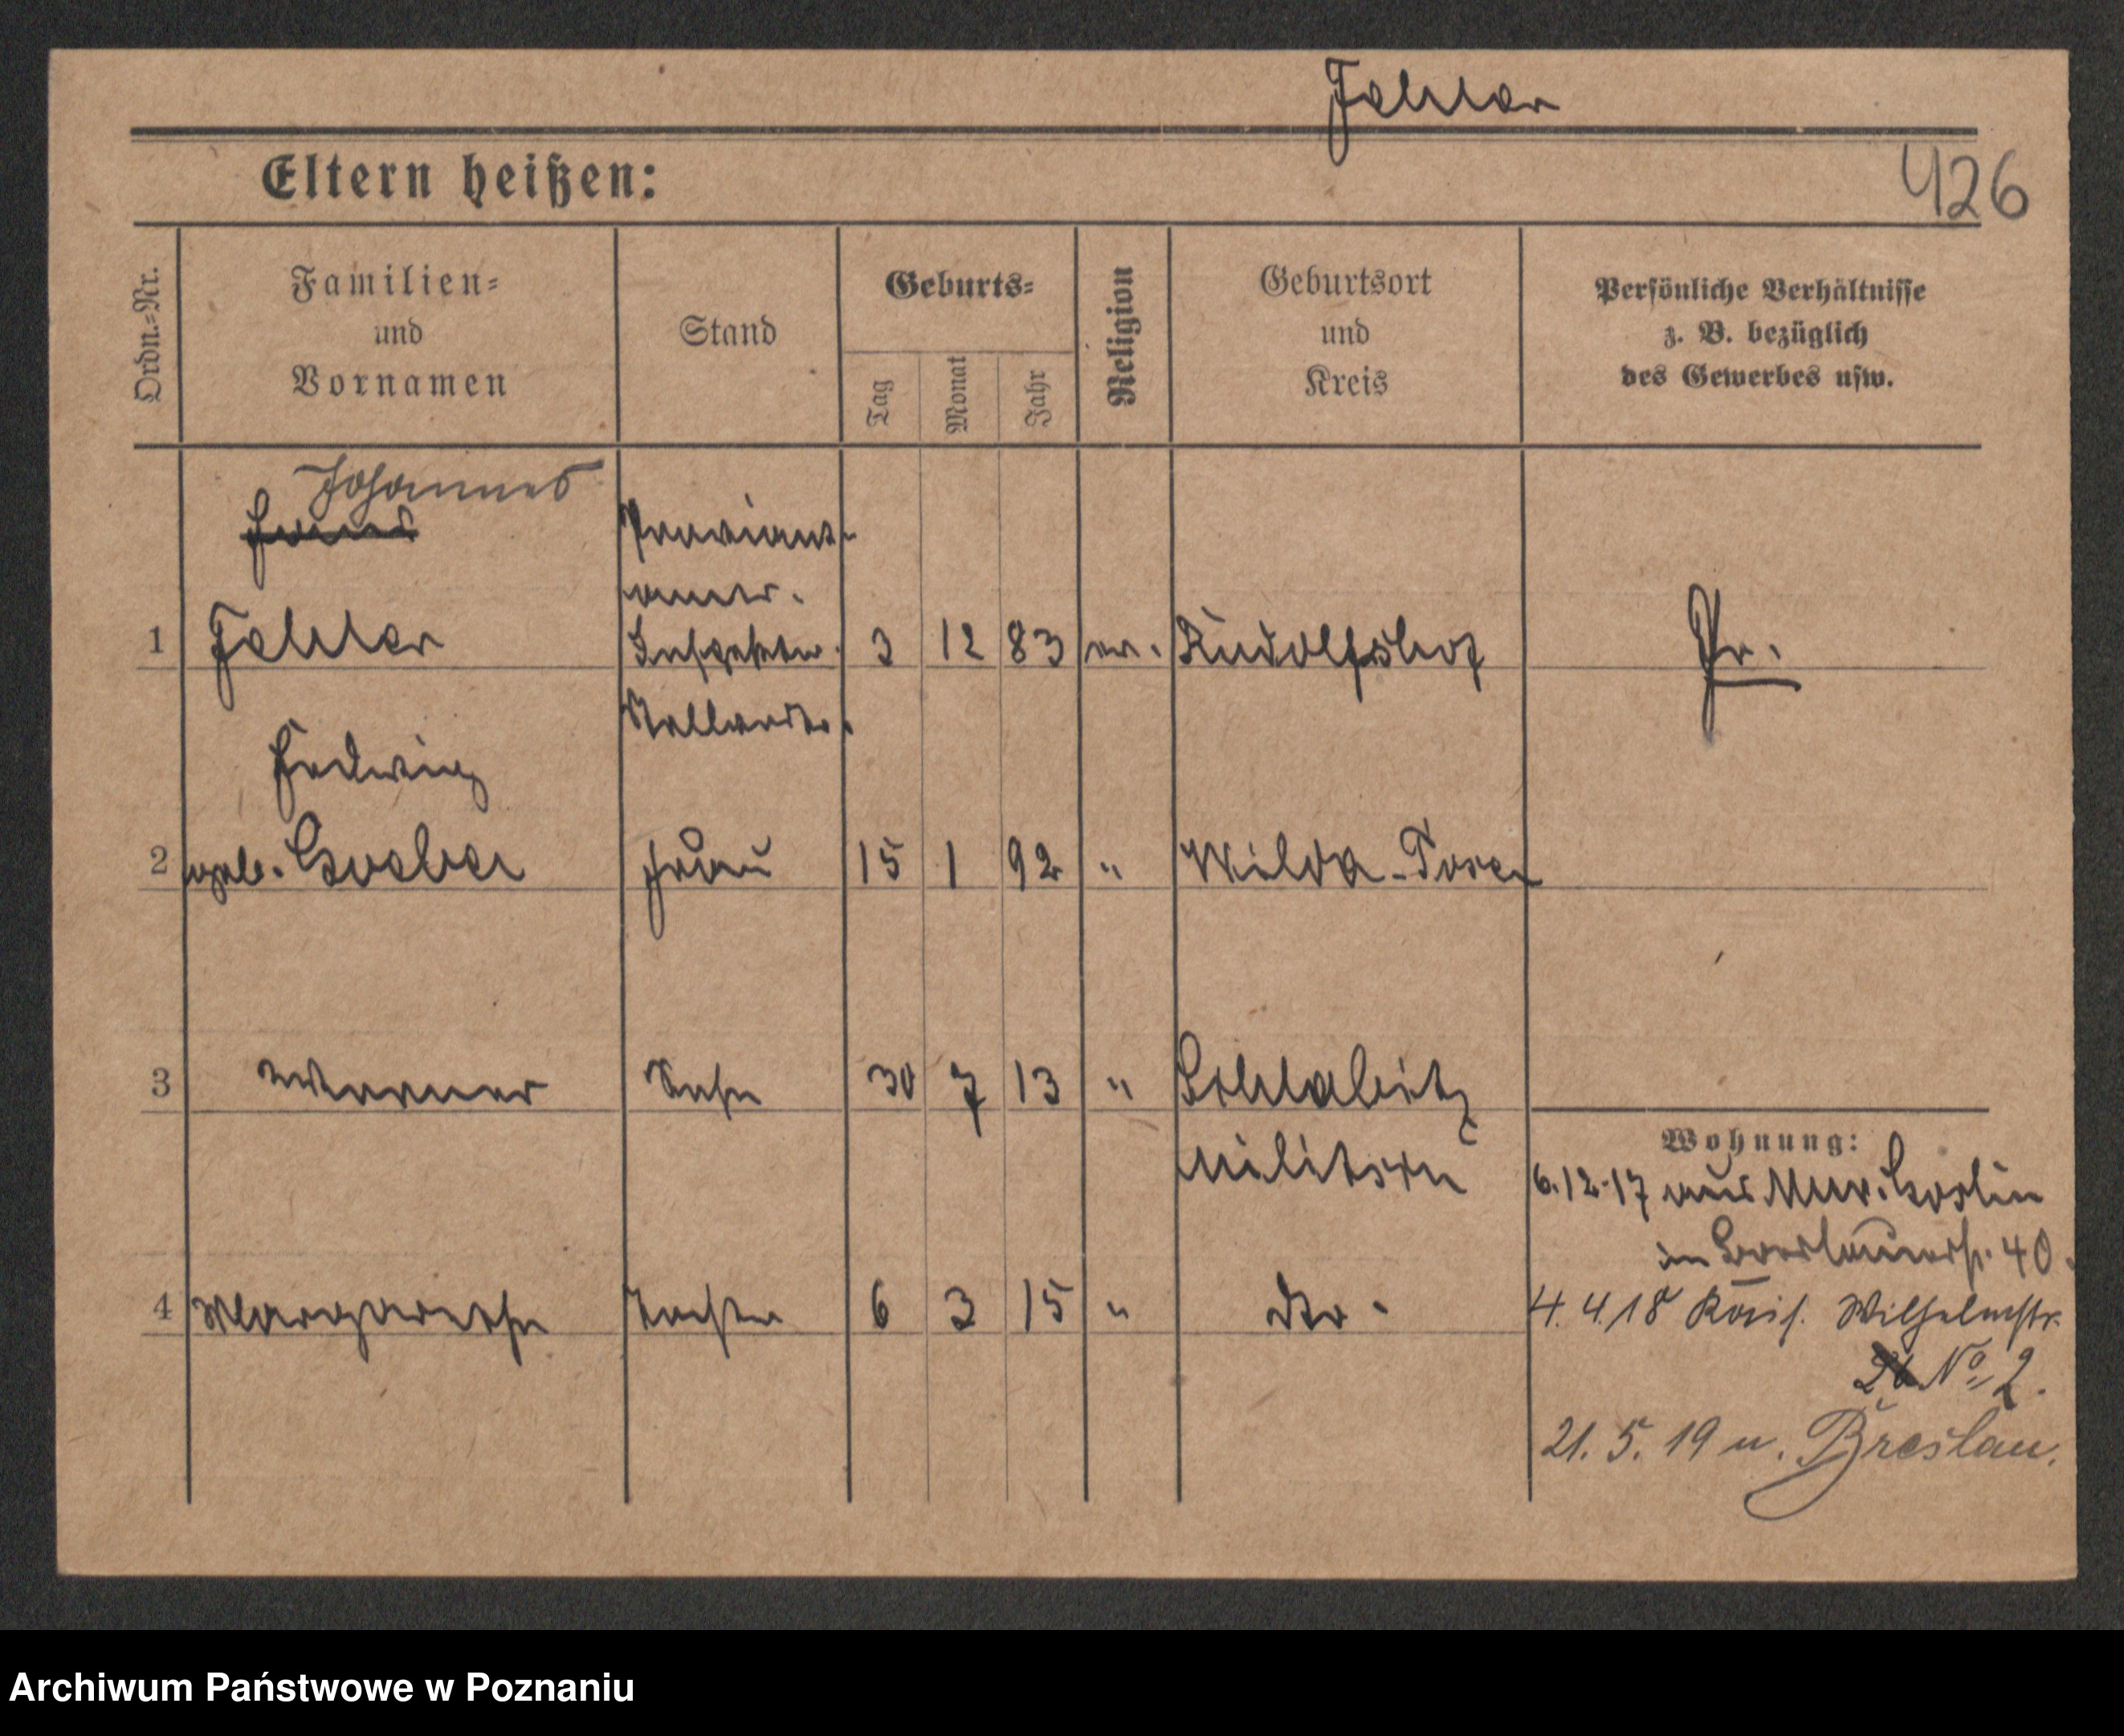 Fehler
Eltern heißen:
426
Ordn.=Nr.
Familien=
und
Vornamen
Stand
Geburts=
Tag
Monat
Jahr
Religion
Geburtsort
und
Kreis
Persönliche Verhältnisse
z. B. bezüglich
des Gewerbes usw.
Johannes
Hans
Proviant-
amts.
1 Fehler 3 12 83 ev. Rudolfshof Pr.
Hedwig
2 geb. Frau 15 1 92 " Wilda-Posen
3 Werner Sohn 30 7 13 "
Militsch
Wohnung:
6.12.17 aus Mur. Goslin
in Breslauerstr. 40.
4 Margarethe Tochter 6 3 15 " dto.
4.4.18 Kais. Wilhelmstr.
No 2.
21. 5. 19 n. Breslau.
Archiwum Państwowe w Poznaniu